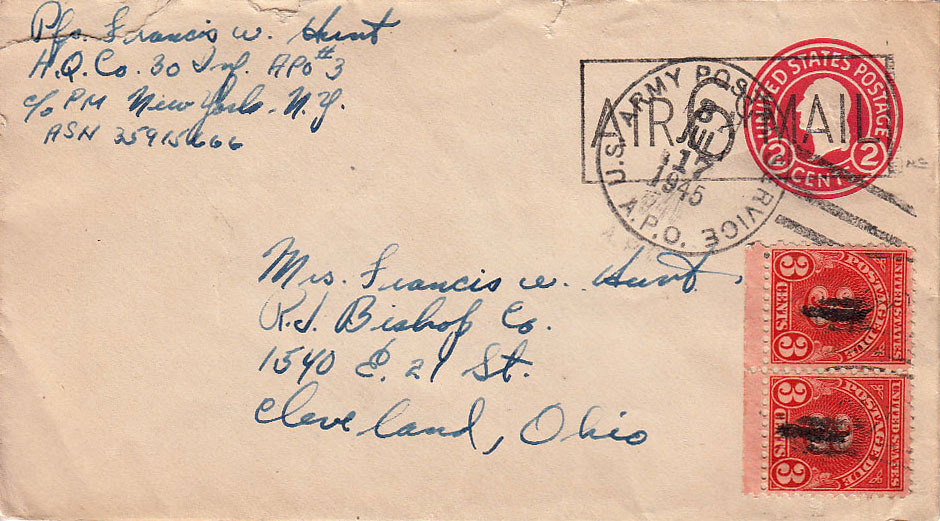 Pfc. Francis W. Hunt
H.Q. Co. 30 Inf. APO # 3
c/o PM New York. N.Y.
ASN 35915666
AIR MAIL
6
U.S. ARMY POSTAL SERVICE
A.P.O.
JUL
17
1945
UNITED STATES POSTAGE
2 CENTS 2
Mrs. Francis W. Hunt.
R.J. Bishop Co.
1540 E. 21 St.
Cleveland, Ohio
UNITED STATES
POSTAGE DUE
3 CENTS 3
UNITED STATES
POSTAGE DUE
3 CENTS 3